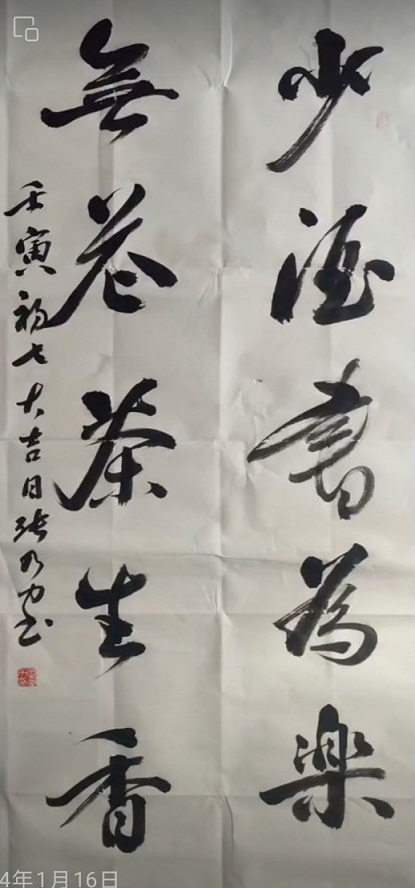 少酒書為樂
無花茶生香
壬寅初七大吉日張乃田书
4年1月16日